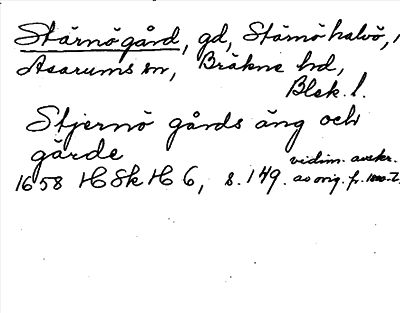 Stärnögård, gd, Stärnö halvö,
Asarums sn, Bräkne hd,
Blek. l.
Stjernö gårds äng och
gärde
vidim. avskr.
1658 HSkH 6, s. 149. av orig. fr.